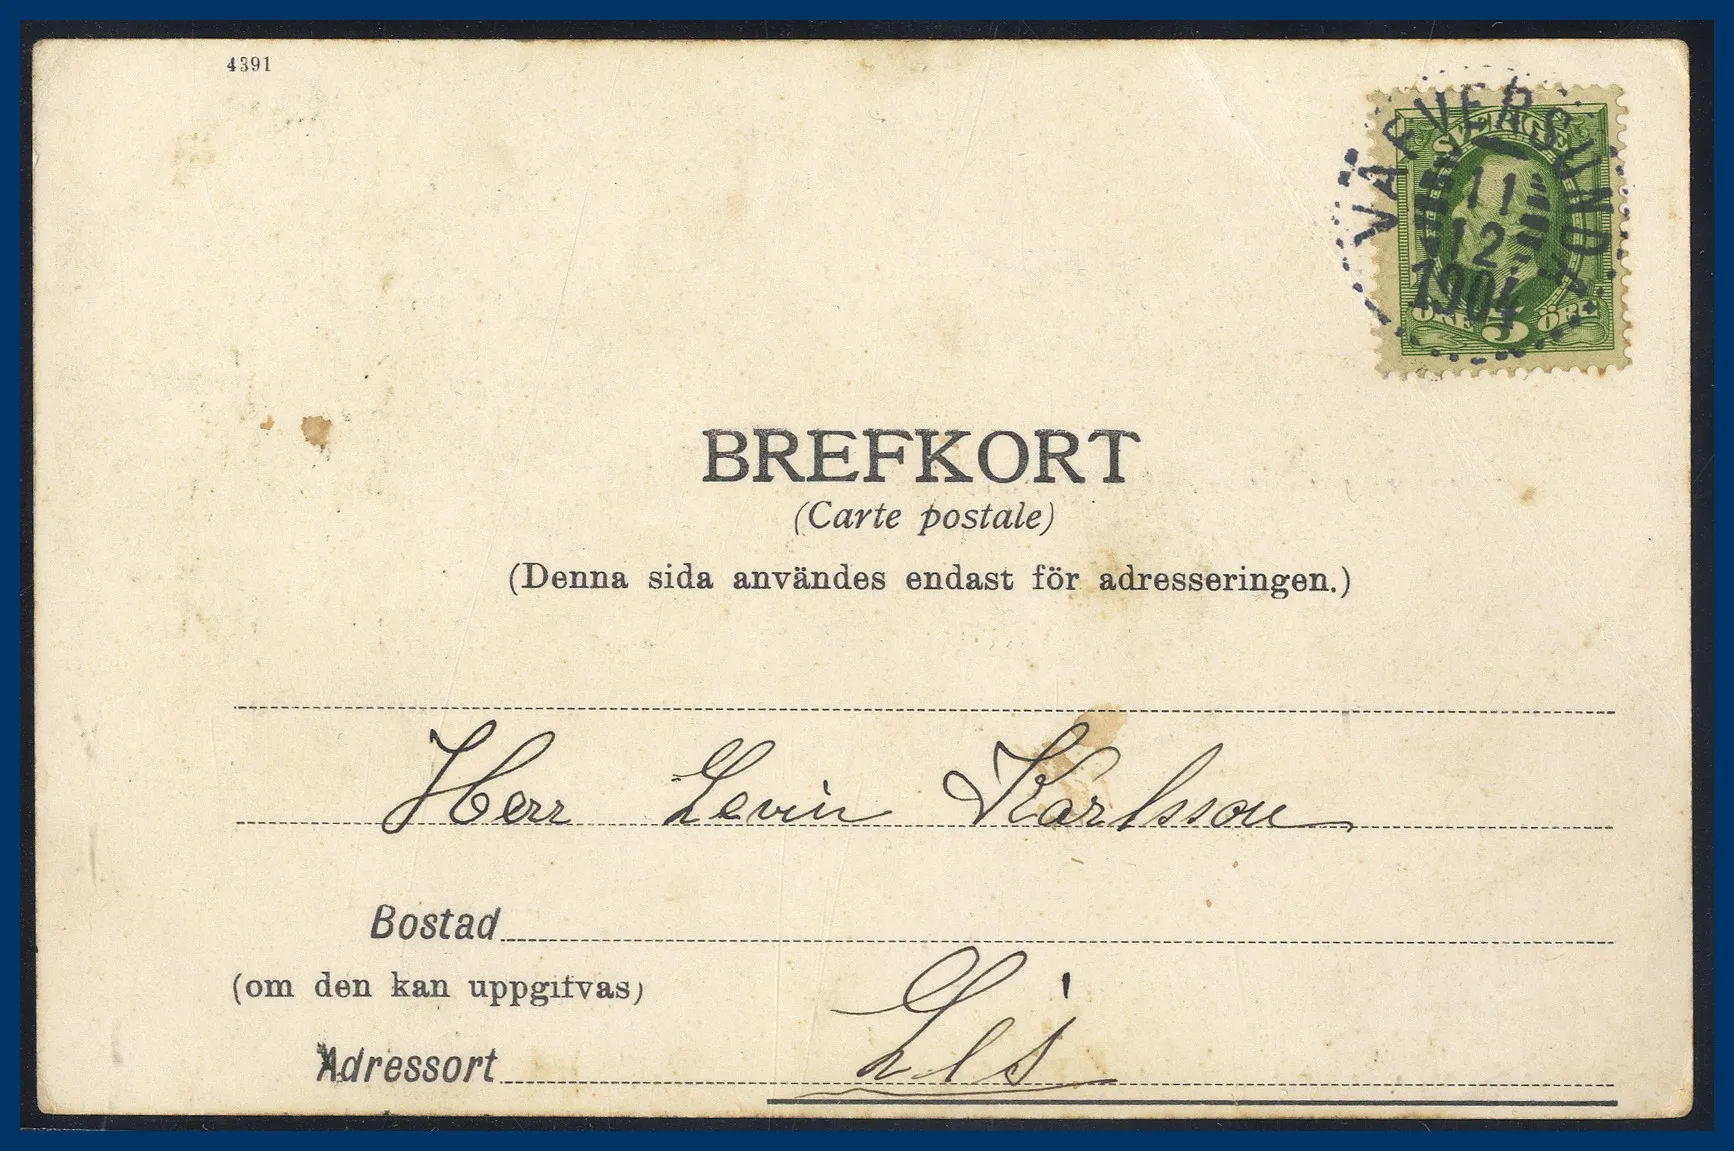 4391
VÄFVERSUNDA
SVERIGE
11
12
1904
ÖRE 5 ÖRE
BREFKORT
(Carte postale)
(Denna sida användes endast för adresseringen.)
Herr Levin Karlsson
Bostad
(om den kan uppgifvas)
Adressort